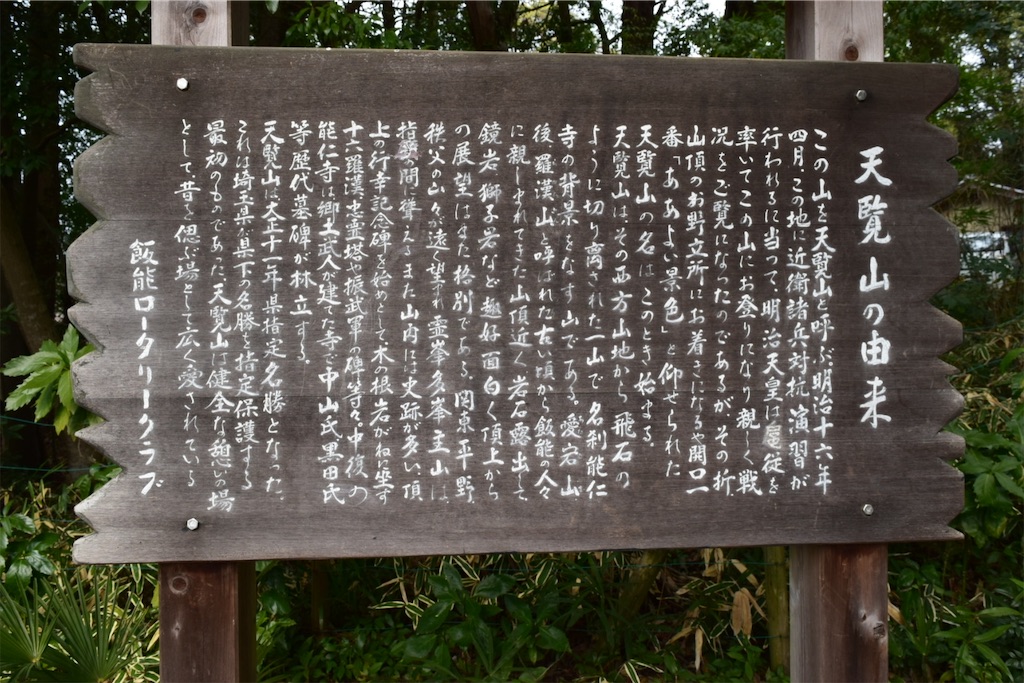 天覧山の由来
この山を天覧山と呼ぶ明治十六年
四月、この地に近衛諸兵対抗演習が
行われるに当って、明治天皇は扈従を
率いてこの山にお登りになり親しく戦
況をご覧になったのであるが、その折、
山頂のお野立所にお着きになるや開口一
番「ああよい景色」と仰せられた
天覧山の名は、このとき始まる。
天覧山は、その西方山地から飛石の
ように切り離された一山で、名刹能仁
寺の背景をなす山である。愛宕山
後、羅漢山と呼ばれた古い頃から飯能の人々
に親しまれてきた山頂近く岩石露出して
鏡岩獅子岩など趣好面白く頂上から
の展望はまた格別である。関東平野、
秩父の山々が遠く望まれ霊峯多峯主山は、
指顧の間に聳えるまた山内には史跡が多い、頂
上の行幸記念碑を始めとして木の根岩がねに坐す
十六羅漢、忠霊塔や振武軍の碑等々。中腹の
能仁寺は郷土武人が建てた寺で中山氏黒田氏
等歴代墓碑が林立する。
天覧山は大正十一年県指定名勝となった、
これは埼玉県が県下の名勝を指定保護する
最初のものであった、天覧山は健全な憩いの場
として昔を偲ぶ場として広く愛されている
飯能ロータリークラブ